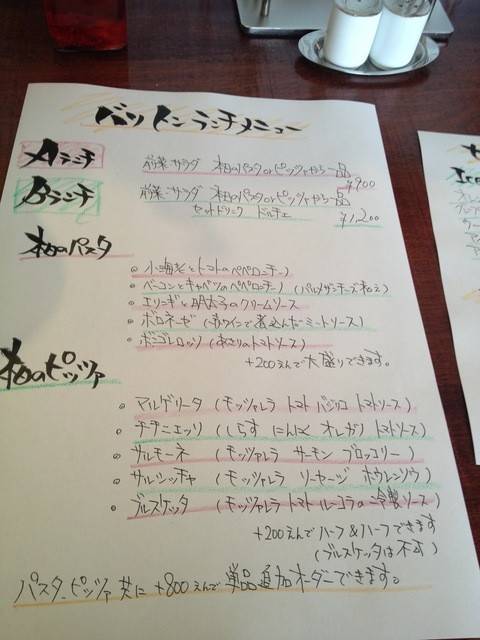 ランチメニュー
Aランチ
前菜サラダ 本日のパスタorピッツァから一品
¥900
Bランチ
前菜サラダ 本日のパスタorピッツァから一品
セットドリンク ドルチェ
¥1,200
本日のパスタ
・小海老とトマトのペペロンチーノ
・ベーコンとキャベツのペペロンチーノ (パルメザンチーズ和え)
・エリンギと明太子のクリームソース
・ボロネーゼ (赤ワインで煮込んだミートソース)
・ボンゴレロッソ (あさりのトマトソース)
+200えんで大盛りできます。
本日のピッツァ
・マルゲリータ (モッツァレラ トマト バジリコ トマトソース)
・チチニエッリ (しらす にんにく オレガノ トマトソース)
・サルモーネ (モッツァレラ サーモン ブロッコリー)
・サルシッチャ (モッツァレラ ソーセージ ホウレンソウ)
・ブルスケッタ (モッツァレラ トマト ルーコラの冷製ソース)
+200えんでハーフ&ハーフできます
(ブルスケッタは不可)
パスタ、ピッツァ共に+800えんで単品追加オーダーできます。